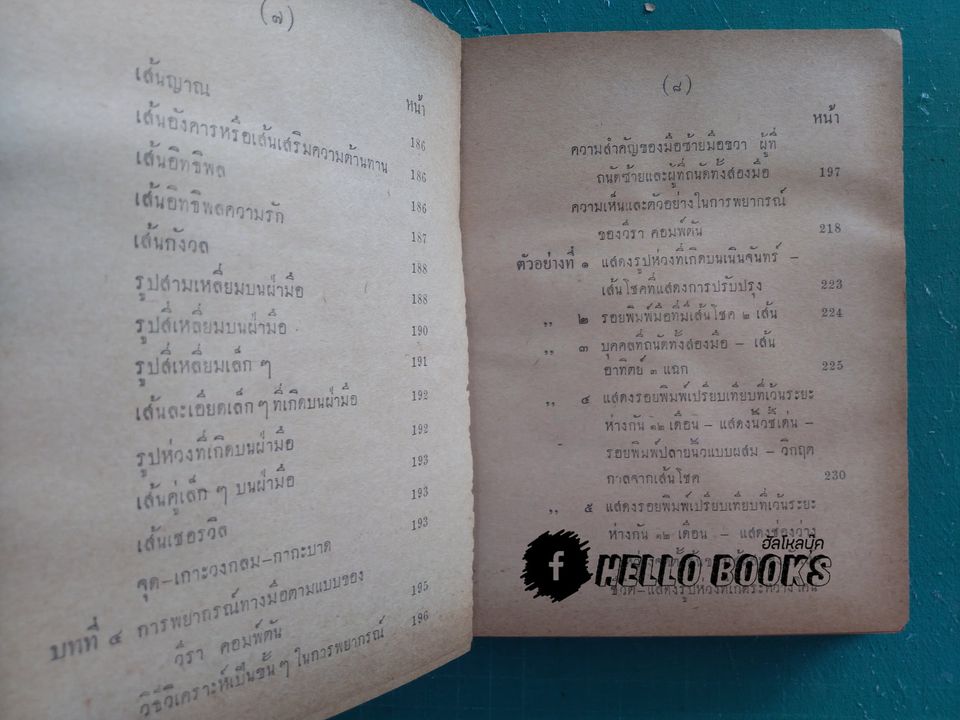 (๗)
หน้า
เส้นญาณ 186
เส้นอังคารหรือเส้นเสริมความต้านทาน 186
เส้นอิทธิพล 186
เส้นอิทธิพลความรัก 187
เส้นกังวล 188
รูปสามเหลี่ยมบนฝ่ามือ 188
รูปสี่เหลี่ยมบนฝ่ามือ 190
รูปสี่เหลี่ยมเล็ก ๆ 191
เส้นละเอียดเล็ก ๆ ที่เกิดบนฝ่ามือ 192
รูปห่วงที่เกิดบนฝ่ามือ 192
เส้นคู่เล็ก ๆ บนฝ่ามือ 193
เส้นเชอรวิล 193
จุด–เกาะวงกลม–กากะบาด 193
บทที่ ๔ การพยากรณ์ทางมือตามแบบของ
วีรา คอมพ์ตัน 195
วิธีวิเคราะห์เป็นขั้น ๆ ในการพยากรณ์ 196
(๘)
หน้า
ความสำคัญของมือซ้ายมือขวา ผู้ที่
ถนัดซ้ายและผู้ที่ถนัดทั้งสองมือ 197
ความเห็นและตัวอย่างในการพยากรณ์
ของวีรา คอมพ์ตัน 218
ตัวอย่างที่ ๑ แสดงรูปห่วงที่เกิดบนเนินจันทร์ –
เส้นโชคที่แสดงการปรับปรุง 223
,, ๒ รอยพิมพ์มือที่มีเส้นโชค ๒ เส้น 224
,, ๓ บุคคลที่ถนัดทั้งสองมือ – เส้น
อาทิตย์ ๓ แฉก 225
,, ๔ แสดงรอยพิมพ์เปรียบเทียบที่เว้นระยะ
ห่างกัน ๑๒ เดือน – แสดงนิ้วชี้เด่น –
รอยพิมพ์ปลายนิ้วแบบผสม – วิกฤต
กาลจากเส้นโชค 230
,, ๕ แสดงรอยพิมพ์เปรียบเทียบที่เว้นระยะ
ห่างกัน ๑๒ เดือน – แสดงช่องว่าง
ฮัลโหลบุ๊ค
f HELLO BOOKS
ชีวิต–แสดงรูปห่วงที่เกิดระหว่างโคน